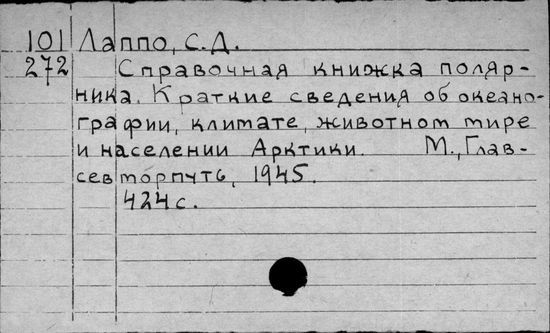 101 Лаппо, С.Д.
272 Справочная книжка поляр-
ника. Краткие сведения об океано-
графии, климате, животном мире
и населении Арктики. М., Глав-
севморпуть, 1945.
424 с.